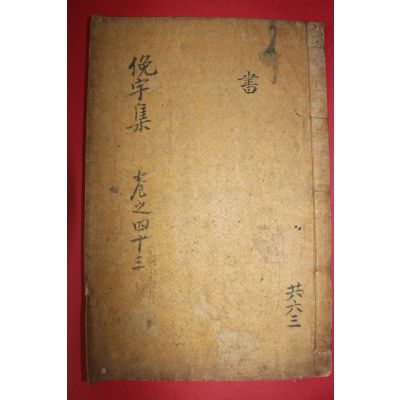 俛宇集 卷之四十三
書
共六三